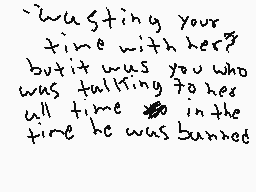 "wasting your
time with her?
but it was you who
was talking to her
all time in the
time he was banned